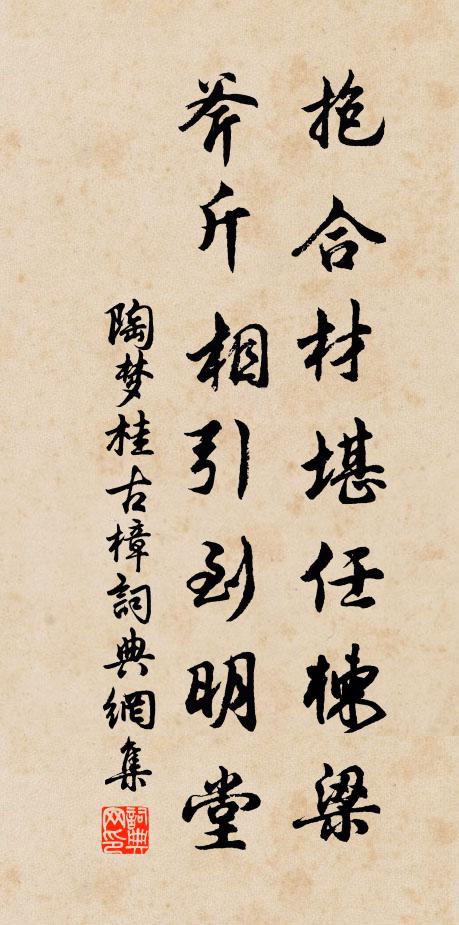 抱合材堪任棟梁
斧斤相引到明堂
陶梦桂古樟詞典網集
詞典网印